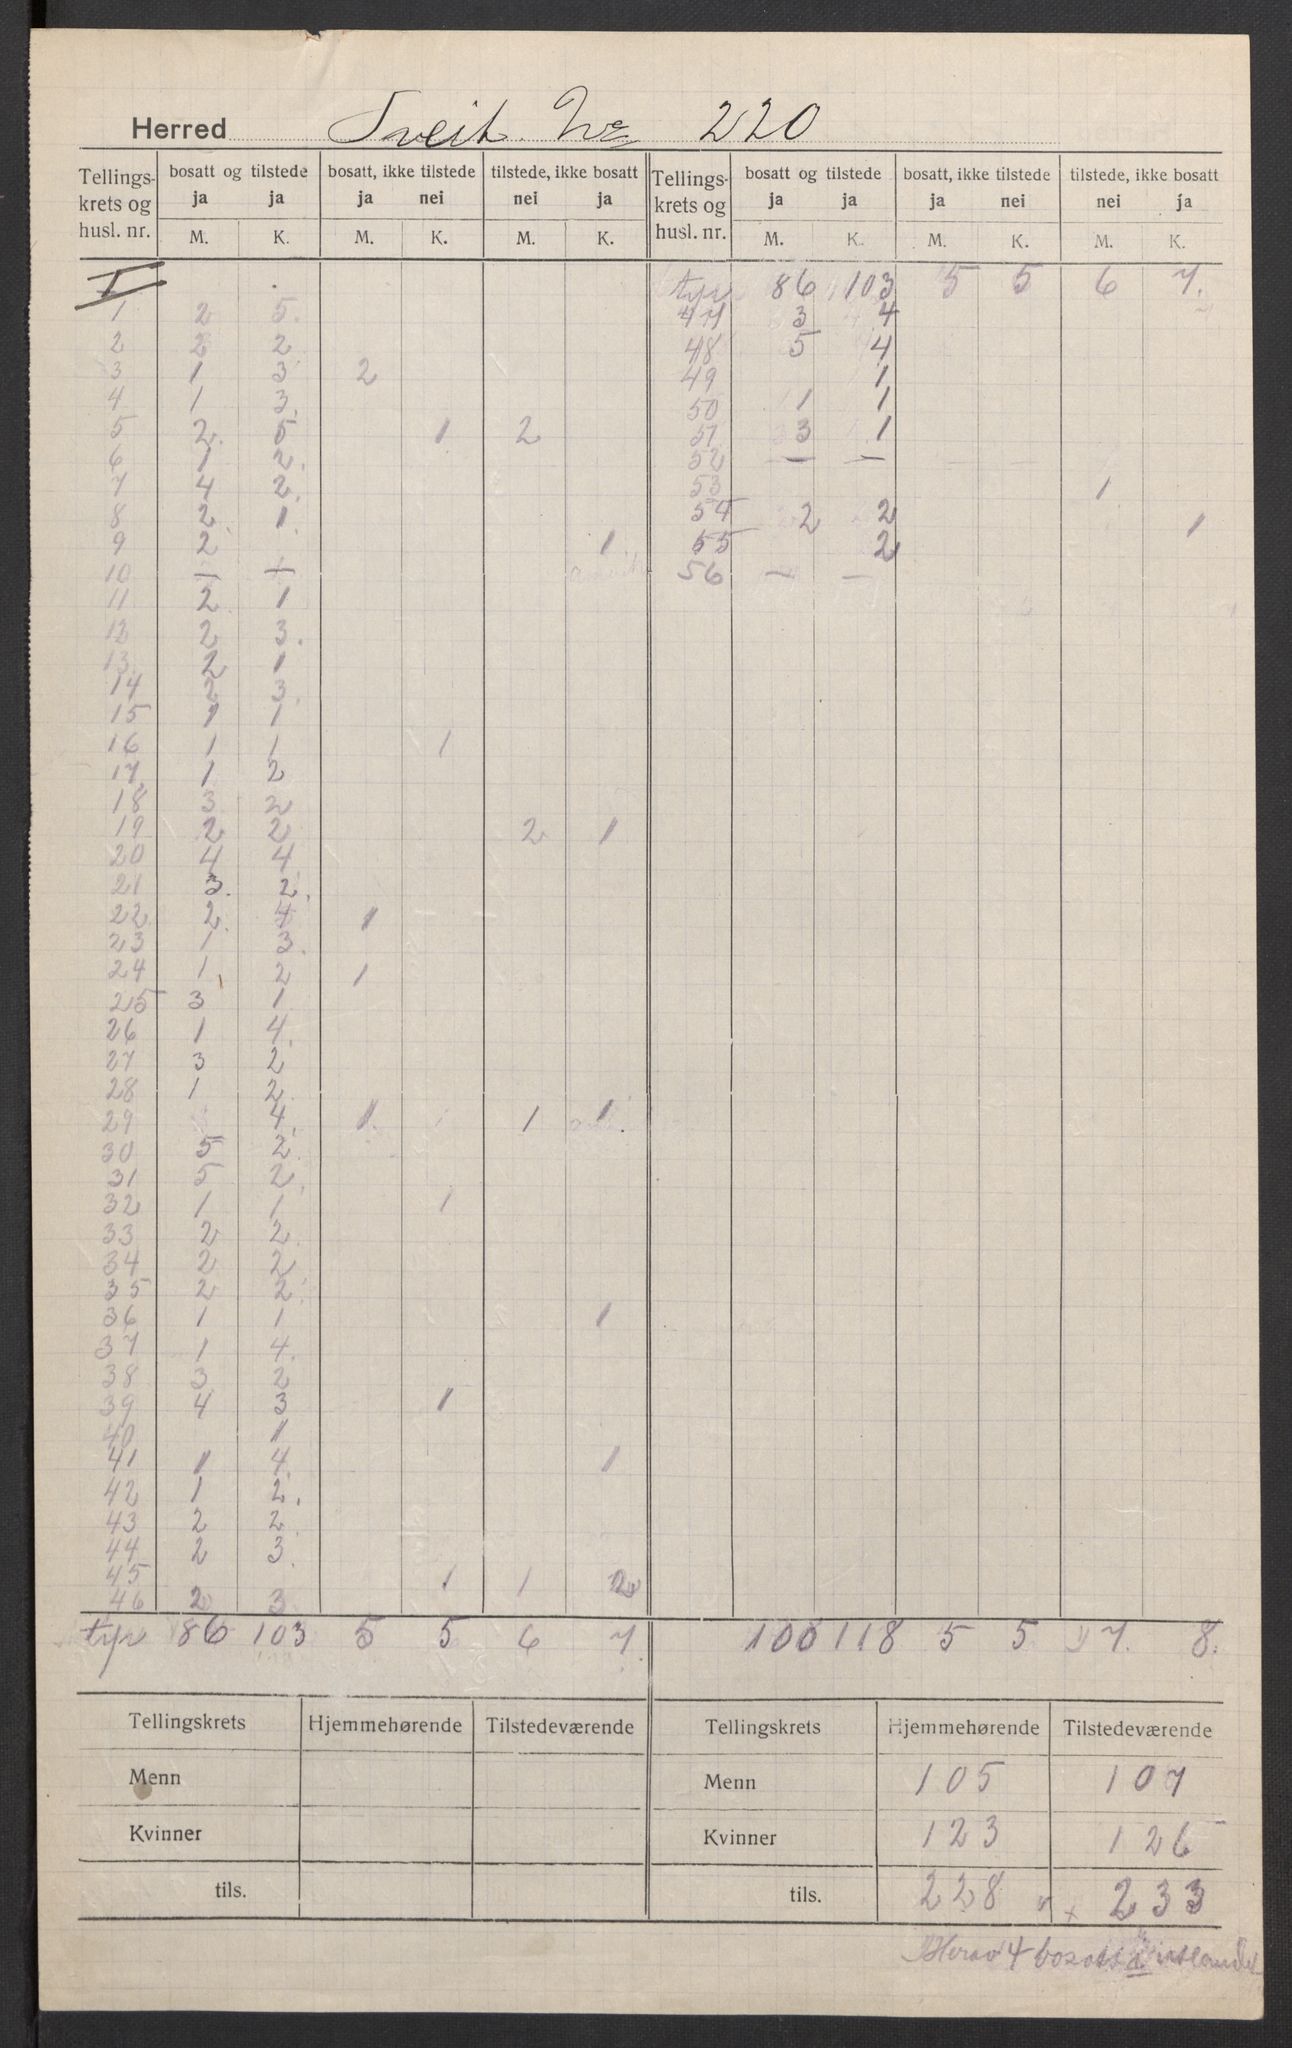 Herred Tveit No 220
Tellings- krets og husl. nr. | bosatt og tilstede ja ja | bosatt, ikke tilstede ja nei | tilstede, ikke bosatt nei ja | Tellings- krets og husl. nr. | bosatt og tilstede ja ja | bosatt, ikke tilstede ja nei | tilstede, ikke bosatt nei ja
M. K. M. K. M. K. M. K. M. K. M. K.
I | 86 103 5 5 6 7.
1 2 5. | 47 3 4
2 2 2 | 48 5 4
3 1 3 2 | 49 1
4 1 3. | 50 1 1
5 2. 5 1 2 | 51 3 1
6 1 2. | 52 — —
7 4 2. | 53 1
8 2. 1. | 54 2 2 1
9 2 1 | 55 2
10 — — | 56 — —
11 2 1
12 2 3.
13 2 1
14 2 3
15 1 1
16 1 1 1
17 1 2
18 3 2
19 2 2 2 1
20 4 4
21 3. 2.
22 2. 4 1
23 1 3.
24 1 2 1
25 3 1
26 1 4.
27 3 2
28 1 2
29 4. 1. 1 1.
30 5 2.
31 5 2.
32 1 1 1
33 2 2.
34 2 2
35 2 2
36 1 1 1
37 1 4.
38 3 2
39 4 3 1
40 1
41 1 4. 1
42 1 2.
43 2 2
44 2 3.
45 1 1 2
46 2 3
86 103 5 5 6 7. | 100 118 5 5 7. 8.
Tellingskrets | Hjemmehørende | Tilstedeværende | Tellingskrets | Hjemmehørende | Tilstedeværende
Menn | Menn 105 107
Kvinner | Kvinner 123 126
tils. | tils. 228 x 233
Herav 4 bosatt i utlandet